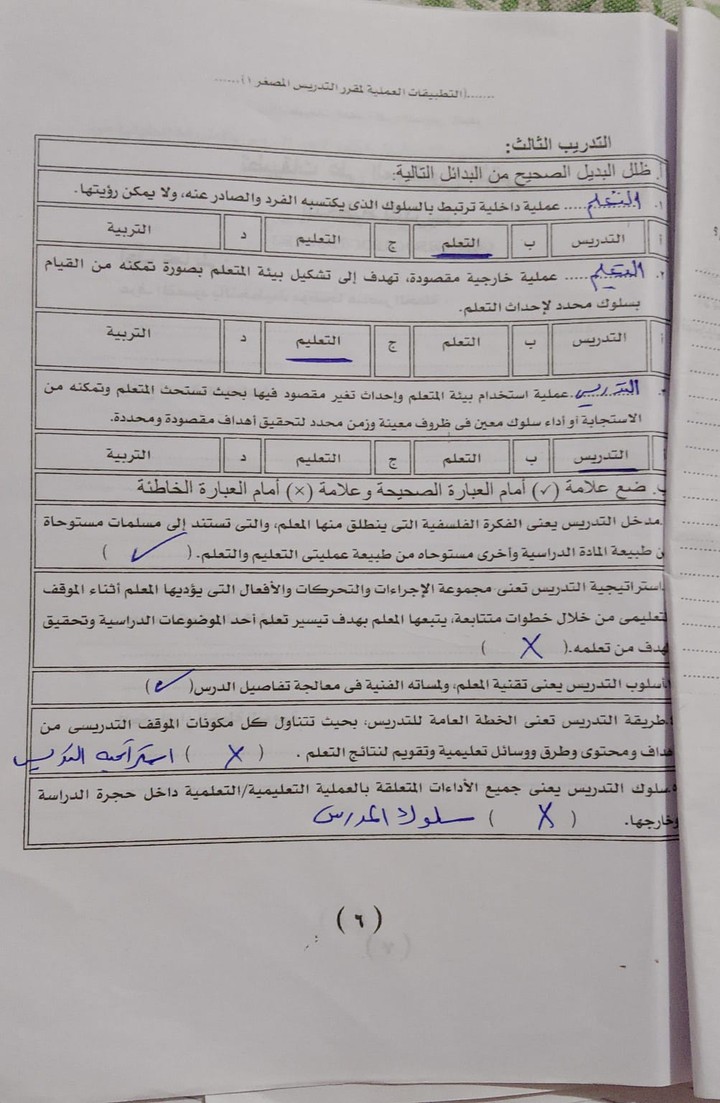 .......(التطبيقات العملية لمقرر التدريس المصغر ١)......
التدريب الثالث:
أ. ظلل البديل الصحيح من البدائل التالية:
١. التعلم..... عملية داخلية ترتبط بالسلوك الذى يكتسبه الفرد والصادر عنه، ولا يمكن رؤيتها.
أ التدريس ب التعلم ج التعليم د التربية
٢. التعليم..... عملية خارجية مقصودة، تهدف إلى تشكيل بيئة المتعلم بصورة تمكنه من القيام
بسلوك محدد لإحداث التعلم.
أ التدريس ب التعلم ج التعليم د التربية
التدريس.عملية استخدام بيئة المتعلم وإحداث تغير مقصود فيها بحيث تستحث المتعلم وتمكنه من
الاستجابة أو أداء سلوك معين فى ظروف معينة وزمن محدد لتحقيق أهداف مقصودة ومحددة.
التدريس ب التعلم ج التعليم د التربية
ب. ضع علامة (✓) أمام العبارة الصحيحة وعلامة (×) أمام العبارة الخاطئة
مدخل التدريس يعنى الفكرة الفلسفية التى ينطلق منها المعلم، والتى تستند إلى مسلمات مستوحاة
من طبيعة المادة الدراسية وأخرى مستوحاه من طبيعة عمليتى التعليم والتعلم. ( ✓ )
استراتيجية التدريس تعنى مجموعة الإجراءات والتحركات والأفعال التى يؤديها المعلم أثناء الموقف
التعليمى من خلال خطوات متتابعة، يتبعها المعلم بهدف تيسير تعلم أحد الموضوعات الدراسية وتحقيق
الهدف من تعلمه.( × )
أسلوب التدريس يعنى تقنية المعلم، ولمساته الفنية فى معالجة تفاصيل الدرس( ✓ )
طريقة التدريس تعنى الخطة العامة للتدريس، بحيث تتناول كل مكونات الموقف التدريسى من
أهداف ومحتوى وطرق ووسائل تعليمية وتقويم لنتائج التعلم . ( × ) استراتجيه التدريس
سلوك التدريس يعنى جميع الأداءات المتعلقة بالعملية التعليمية/التعلمية داخل حجرة الدراسة
وخارجها. ( × ) سلوك المدرس
(٦)